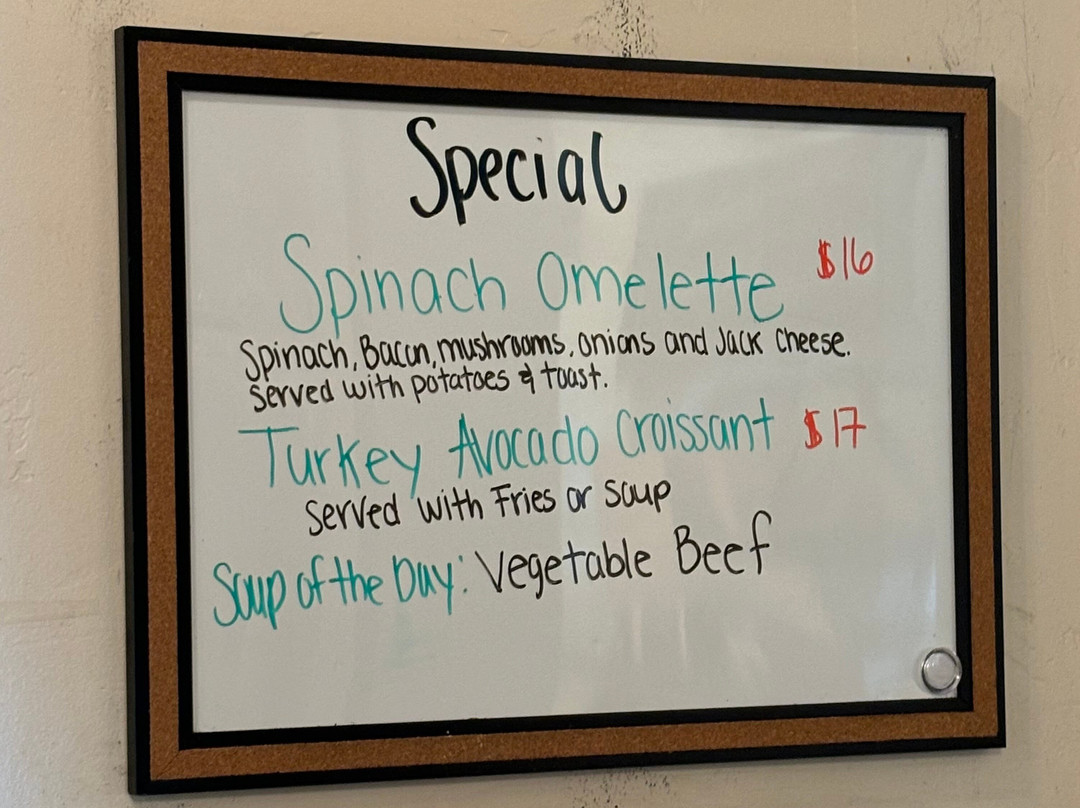 Special
Spinach Omelette $16
Spinach, Bacon, mushrooms, onions and Jack Cheese.
Served with potatoes & toast.
Turkey Avocado Croissant $17
Served with Fries or soup
Soup of the Day: Vegetable Beef